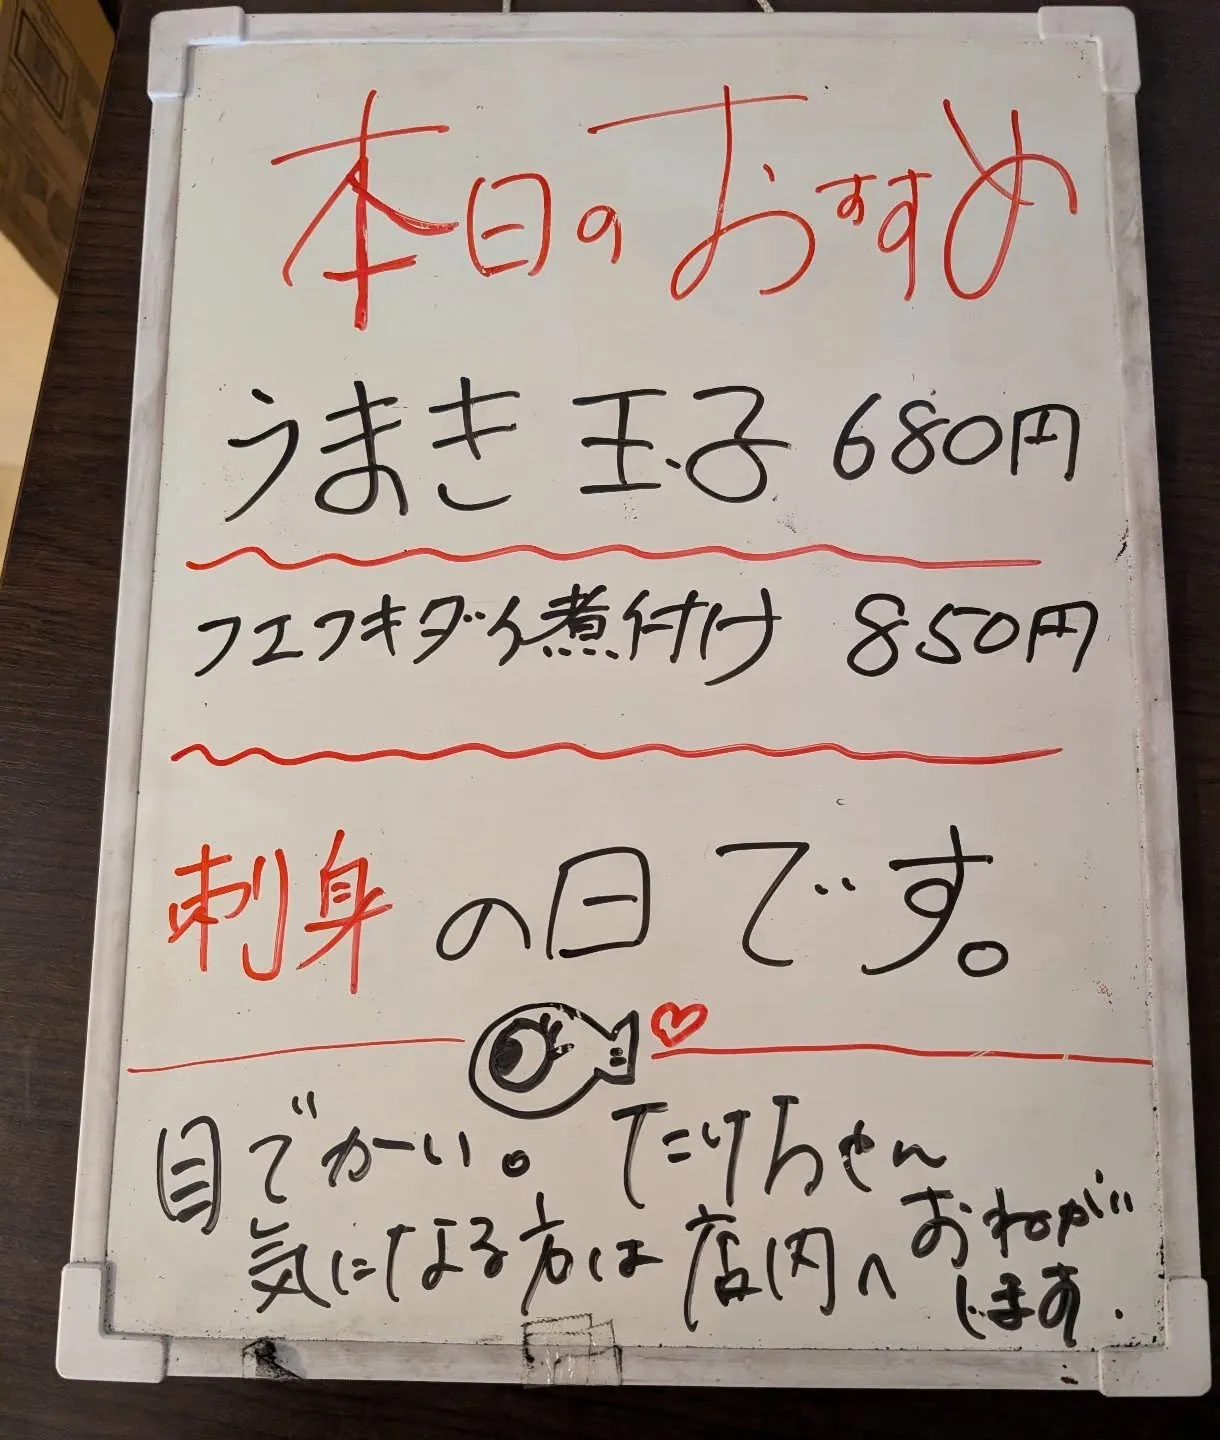 本日のおすすめ
うまき玉子 680円
フエフキダイ煮付け 850円
刺身の日です。
目でかーい。たけちゃん
気になる方は店内へおねがいします.